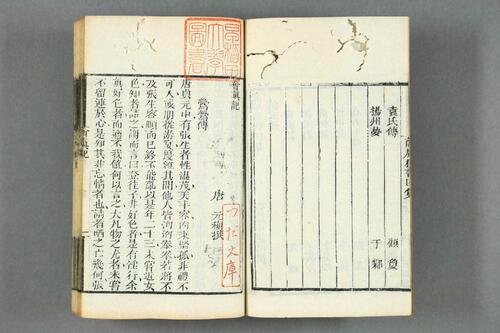 袁氏傳 顧敻
揚州夢 于鄴
會真記
鶯鶯傳
唐 元稹撰
唐貞元中有張生者性溫茂美丰容內秉堅孤非禮不
可入或朋從遊宴擾雜其間他人皆洶洶拳拳若將不
及張生容順而已終不能亂以是年二十三未嘗近女
色知者詰之謝而言曰登徒子非好色者是有淫行余
真好色者而適不我值何以言之大凡物之尤者未嘗
不留連於心是知其非忘情者也詰者哂之亡幾何張
會真記